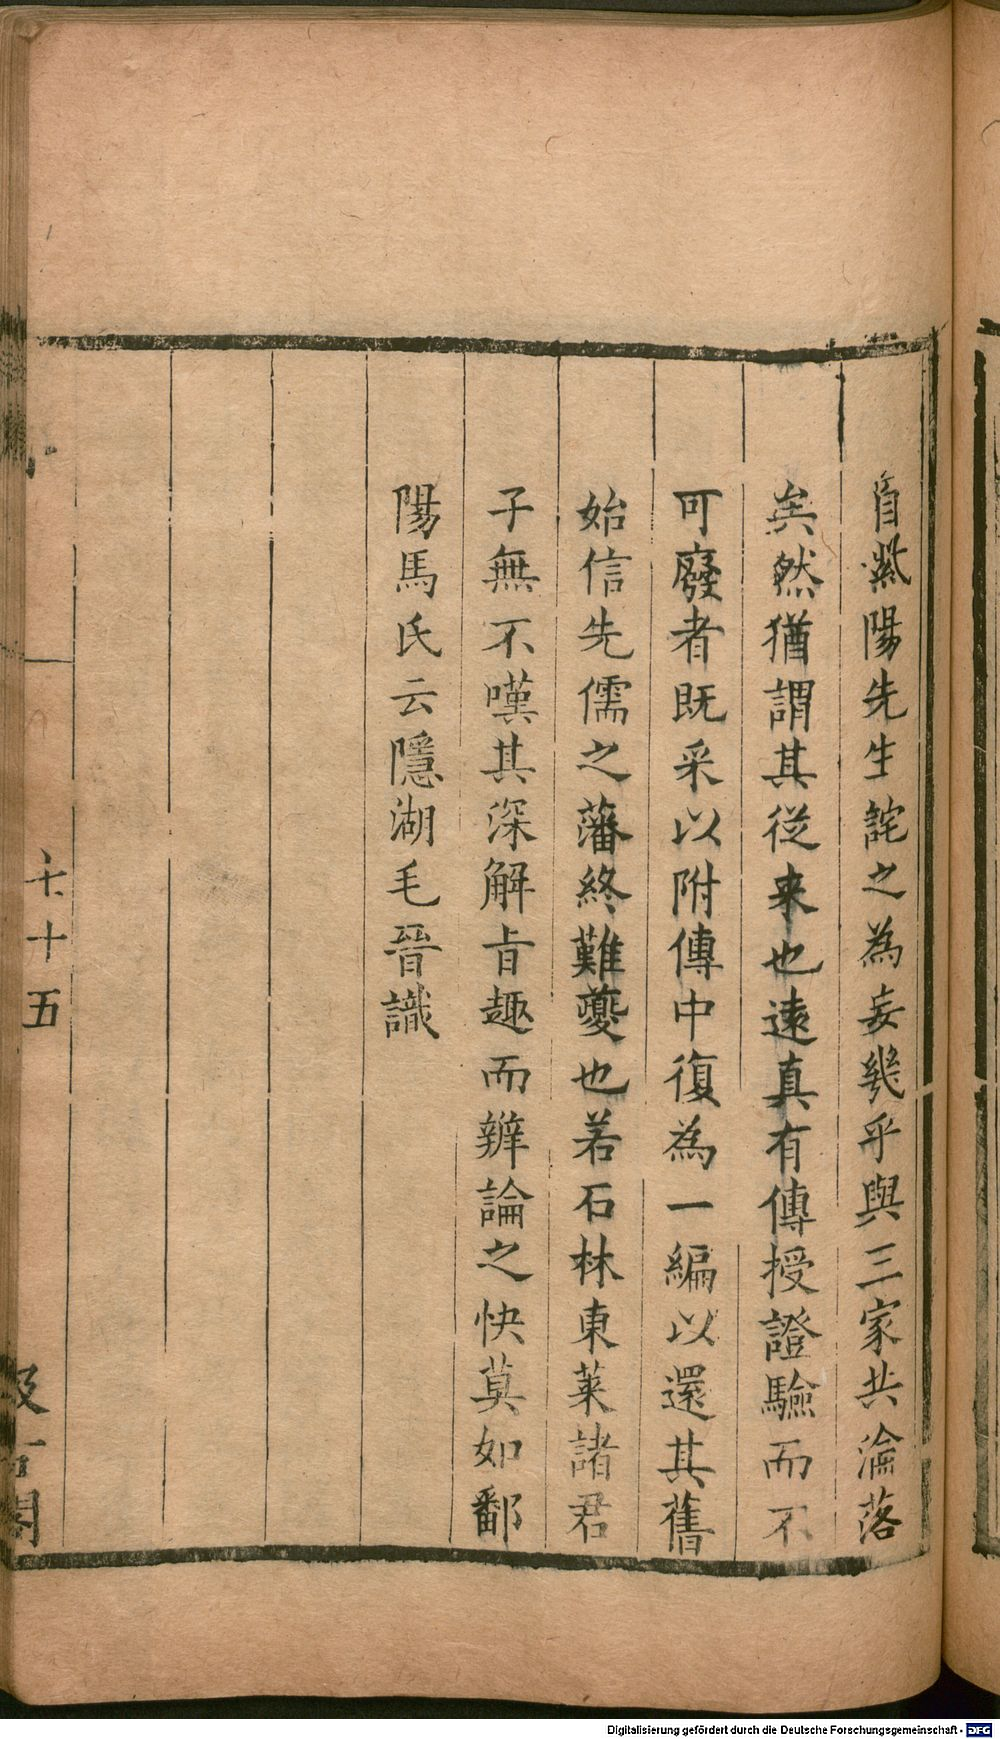 自紫陽先生詫之為妄幾乎與三家共淪落
矣然猶謂其從来也遠真有傳授證驗而不
可廢者既采以附傳中復為一編以還其舊
始信先儒之藩終難躗也若石林東萊諸君
子無不嘆其深解旨趣而辨論之快莫如鄱
陽馬氏云隱湖毛晉識
七十五
汲古閣
Digitalisierung gefördert durch die Deutsche Forschungsgemeinschaft - DFG